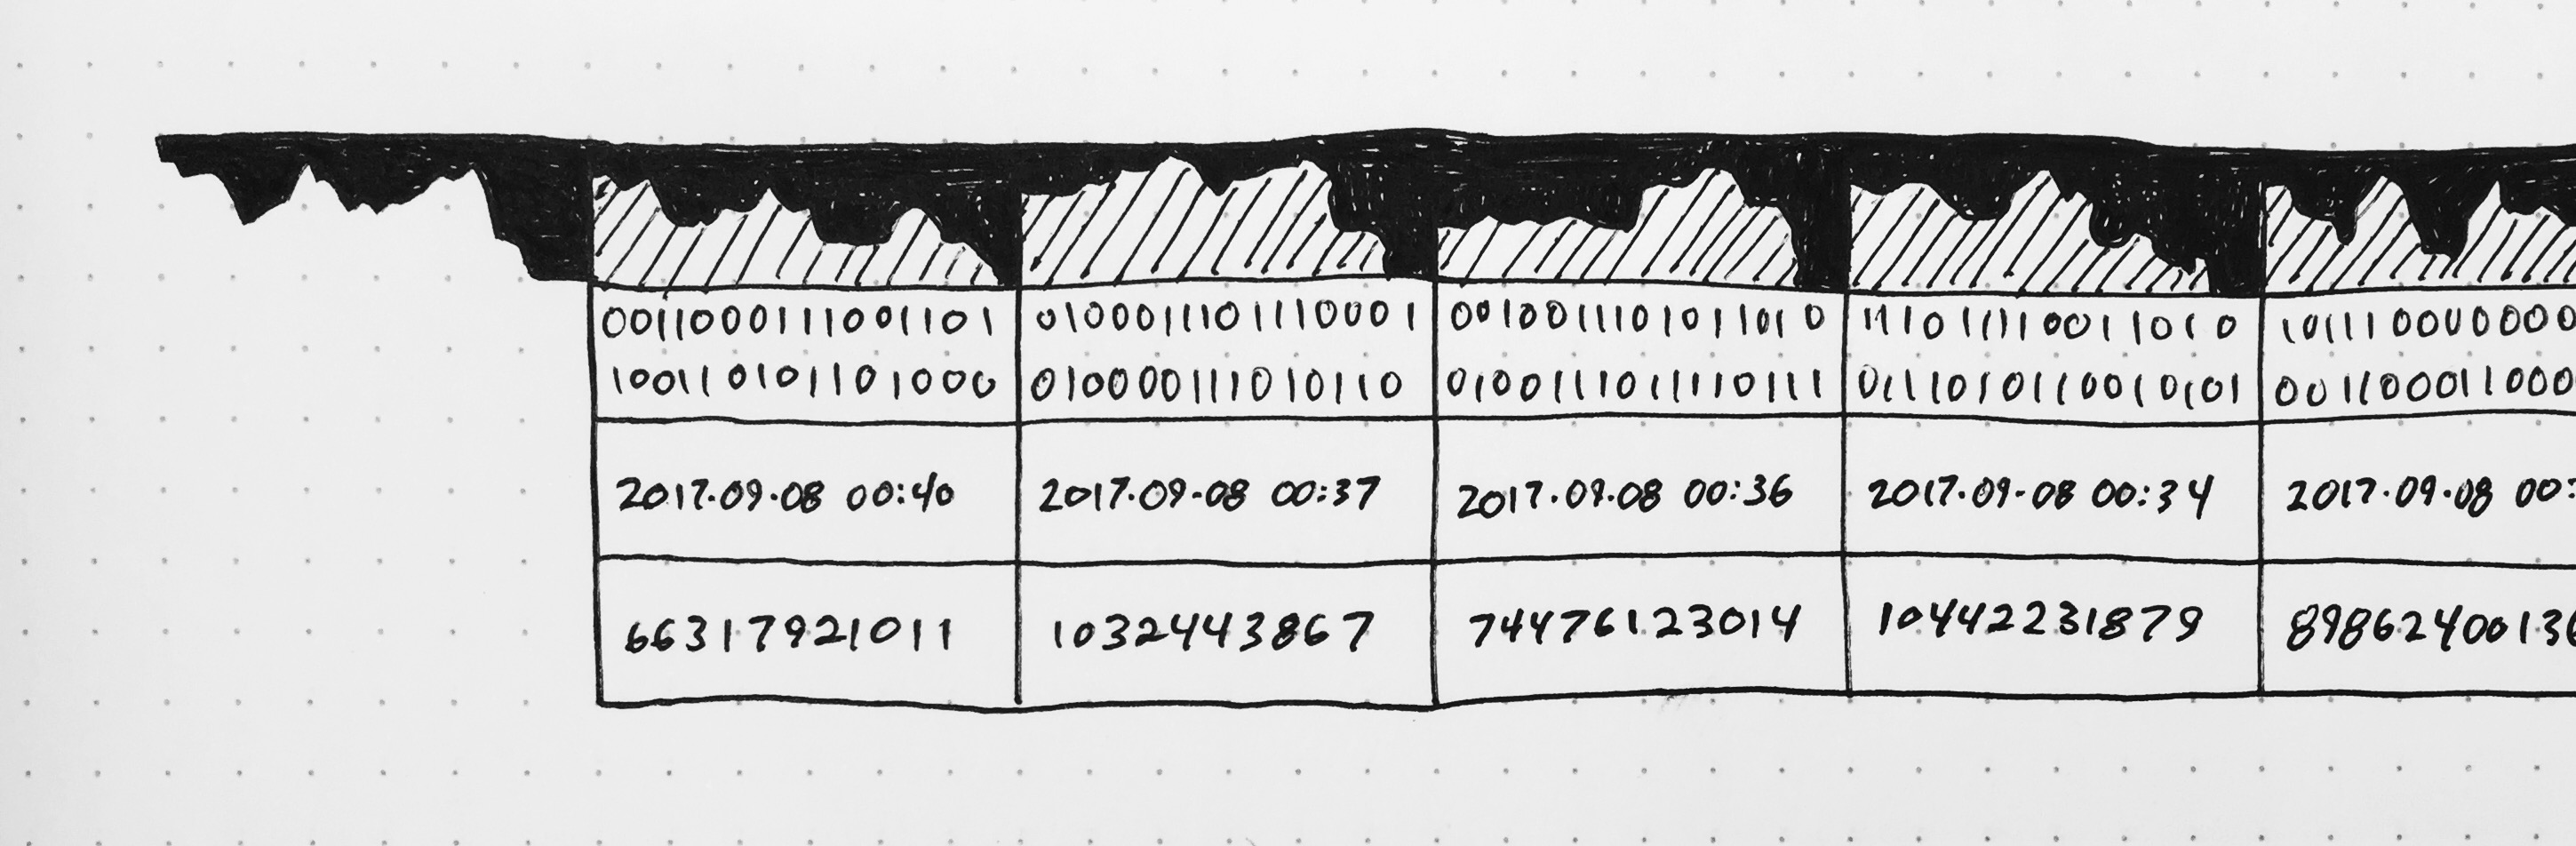 0011000111001101 0100011101110001 0010011101011010 111011110011010 101110000000
100110101101000 010000111010110 0100111011110111 0111010110010101 001100011000
2017.09.08 00:40 2017.09.08 00:37 2017.09.08 00:36 2017.09.08 00:34 2017.09.08 00:
66317921011 1032443867 74476123014 10442231879 8986240013